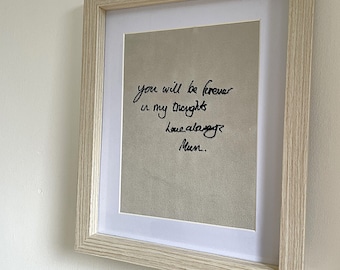 you will be forever
in my thoughts
Love always
Mum.